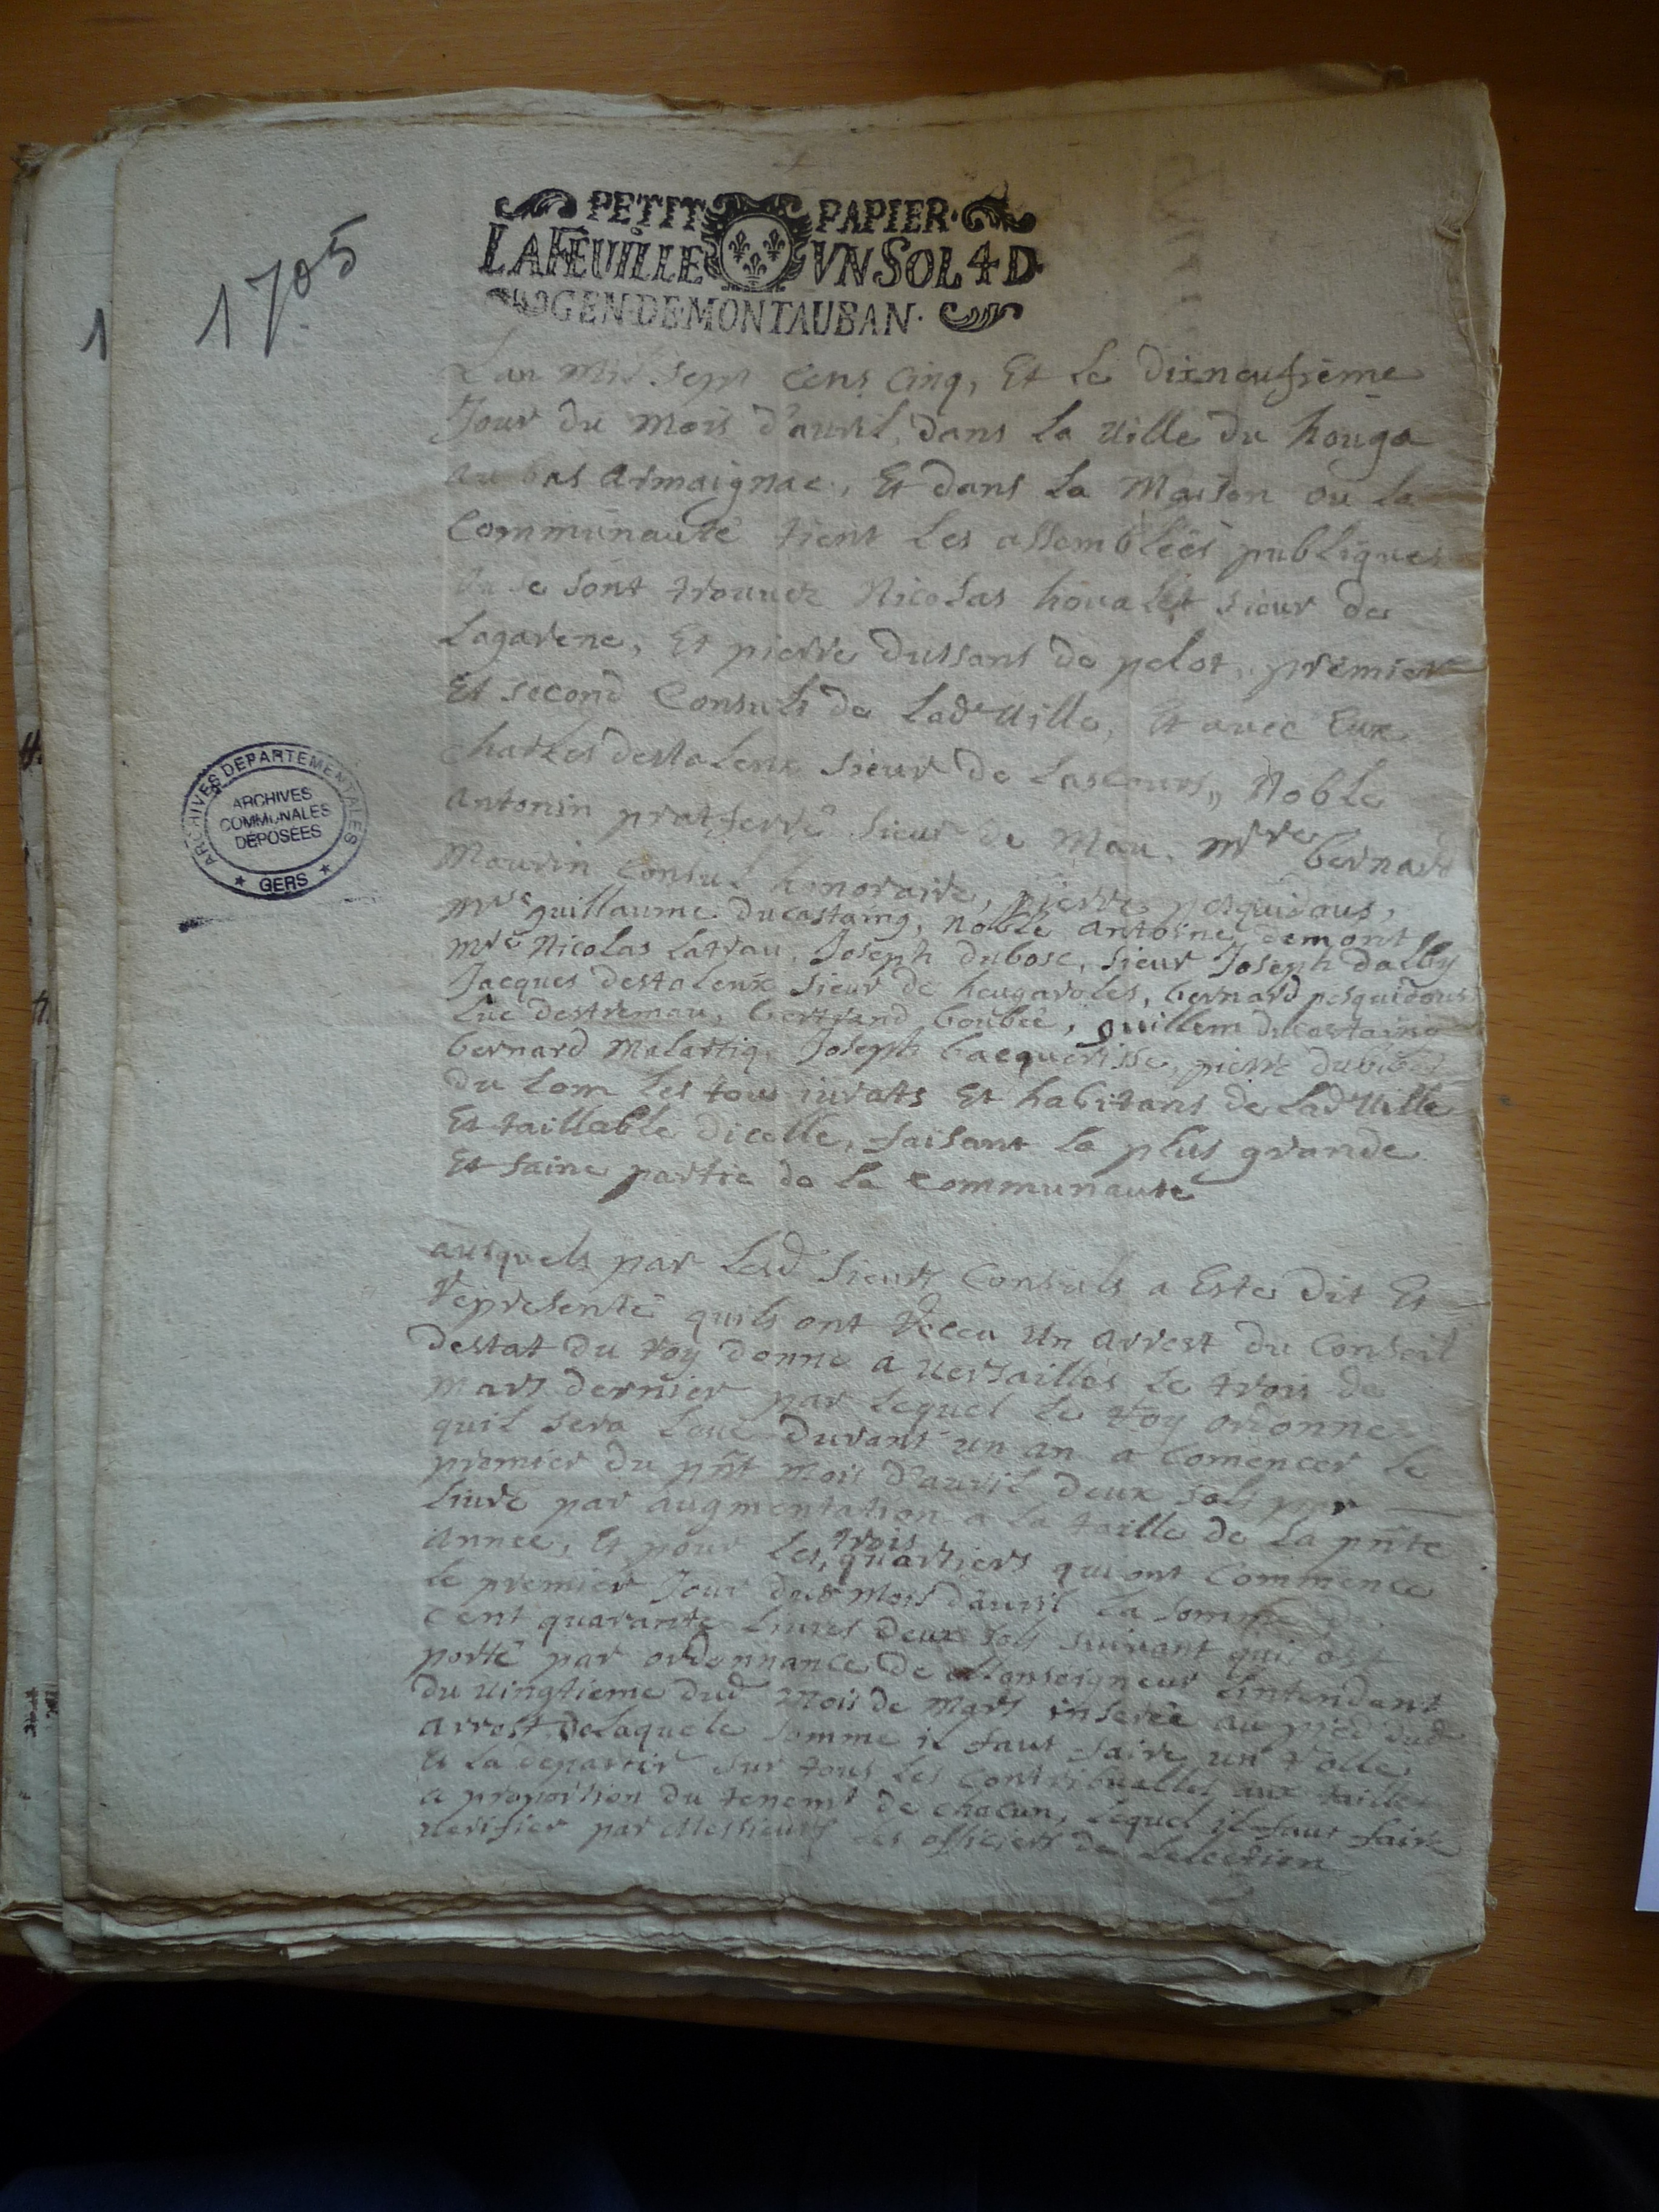 1705
PETIT PAPIER.
LA FEUILLE VN SOL 4 D.
GEN. DE MONTAUBAN.
ARCHIVES DEPARTEMENTALES
ARCHIVES
COMMUNALES
DÉPOSÉES
* GERS *
1
Lan Mil Sept Cens Cinq, Et Le Dixneufieme
Jour du Mois d'auril, dans La Uille du houga
au bas Armaignac, Et dans La Maison ou La
Communauté tient Les assembléés publiques
se sont trouuez Nicolas houalet sieur de
Lagarene, Et pierre Dussans de pelot, premier
Et second Consuls de Lade Uille, Et auec Eux
Charles destaleux sieur de Lascours, Noble
antonin pratferré sieur de Mau, Mre bernard
Maurin Consul honoraire, pierre pesquidous,
Mre guillaume ducastaing, noble antoine demont
Mre Nicolas Latrau, Joseph dubosc, sieur Joseph dalby
Jacques destaleux sieur de heugaroles, bernard pesquidous
Luc destremau, bertrand boubée, guillem ducastaing
bernard Malartiq, Joseph bacquerisse, pierre
du Lom Les tous iurats Et habitans de Lade Uille
Et taillable dicelle, faisant La plus grande
Et saine partie de La Communauté
ausquels par Lesd Sieurs Consuls a Este dit Et
representé quils ont receu Un arrest du Conseil
destat du roy donne a Uersailles Le trois de
Mars dernier par Lequel Le roy ordonne
quil sera Leué durant un an a Comencer Le
premier du pñt mois d'auril deux sols par
Liure par augmentation a La taille de La pñte
année, Et pour Les trois quartiers qui ont Commence
Le premier Jour dud Mois d'auril La somme de
Cent quarante Liures deux sols suiuant quil est
porté par ordonnance de Monseigneur Lintendant
du uingtieme dud Mois de Mars inserée au pied dud
arrest, de Laquele somme il faut faire un rolle
Et La departir sur tous Les Contribuables aux tailles
a proportion du tenemt de chacun, Lequel il faut faire
uerifier par Messieurs Les officiers de Lelection